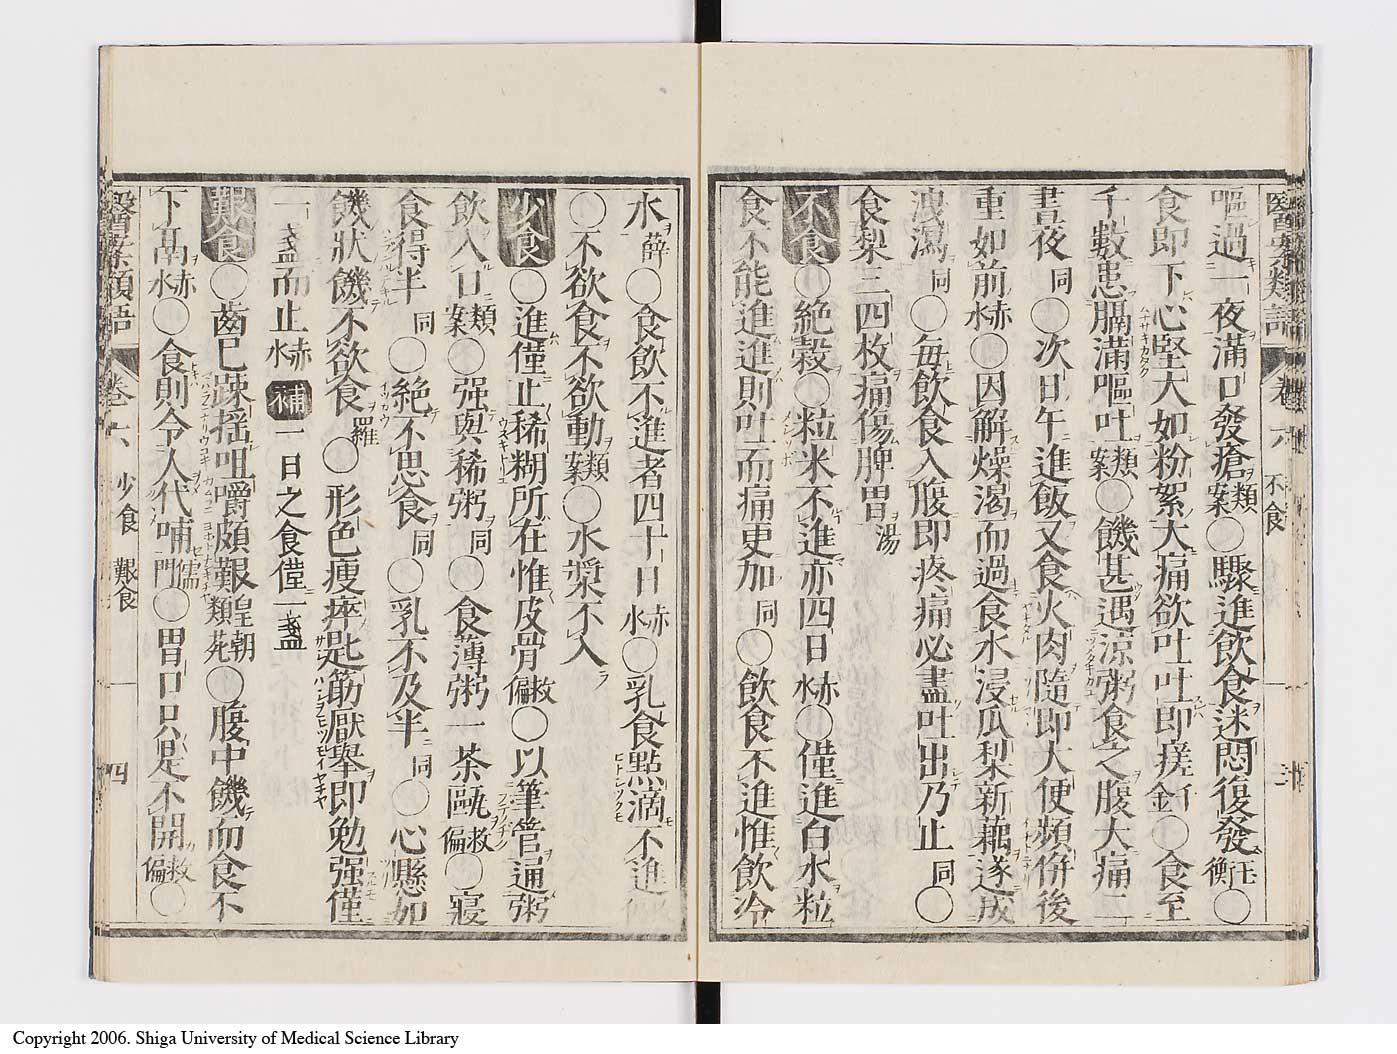 醫案類語 卷六 不食 三
嘔過一夜滿口發瘡類案〇驟進飲食迷悶復發王衡〇
食即下心堅大如粉絮大痛欲吐吐即瘥新〇食至
千數患膈滿嘔吐類案〇饑甚遇涼粥食之腹大痛二
晝夜同〇次日午進飯又食火肉隨即大便頻併後
重如前赤水〇因解燥渴而過食水浸瓜梨新藕遂成
洩瀉同〇每飲食入腹即疼痛必盡吐出乃止同〇
食梨三四枚痛傷脾胃湯
不食〇絶穀〇粒米不進亦四日赤水〇僅進白水粒
食不能進進則吐而痛更加同〇飲食不進惟飲冷
水薛〇食飲不進者四十日赤水〇乳食點滴不進
〇不欲食不欲動類案〇水漿不入
少食〇進僅止稀糊所在惟皮骨救偏〇以筆管通粥
飲入口類案〇强與稀粥同〇食薄粥一茶甌救偏〇寢
食得半同〇絶不思食同〇乳不及半同〇心懸如
饑狀饑不欲食羅〇形色瘦瘁匙筯厭舉即勉强僅
一盞而止赤水 補一日之食僅一盞
艱食〇齒已踈揺咀嚼頗艱皇朝類苑〇腹中饑而食不
下鬲赤水〇食則令人代哺儒門〇胃口只是不開救偏〇
醫案類語 卷六 少食 艱食 四
Copyright 2006. Shiga University of Medical Science Library